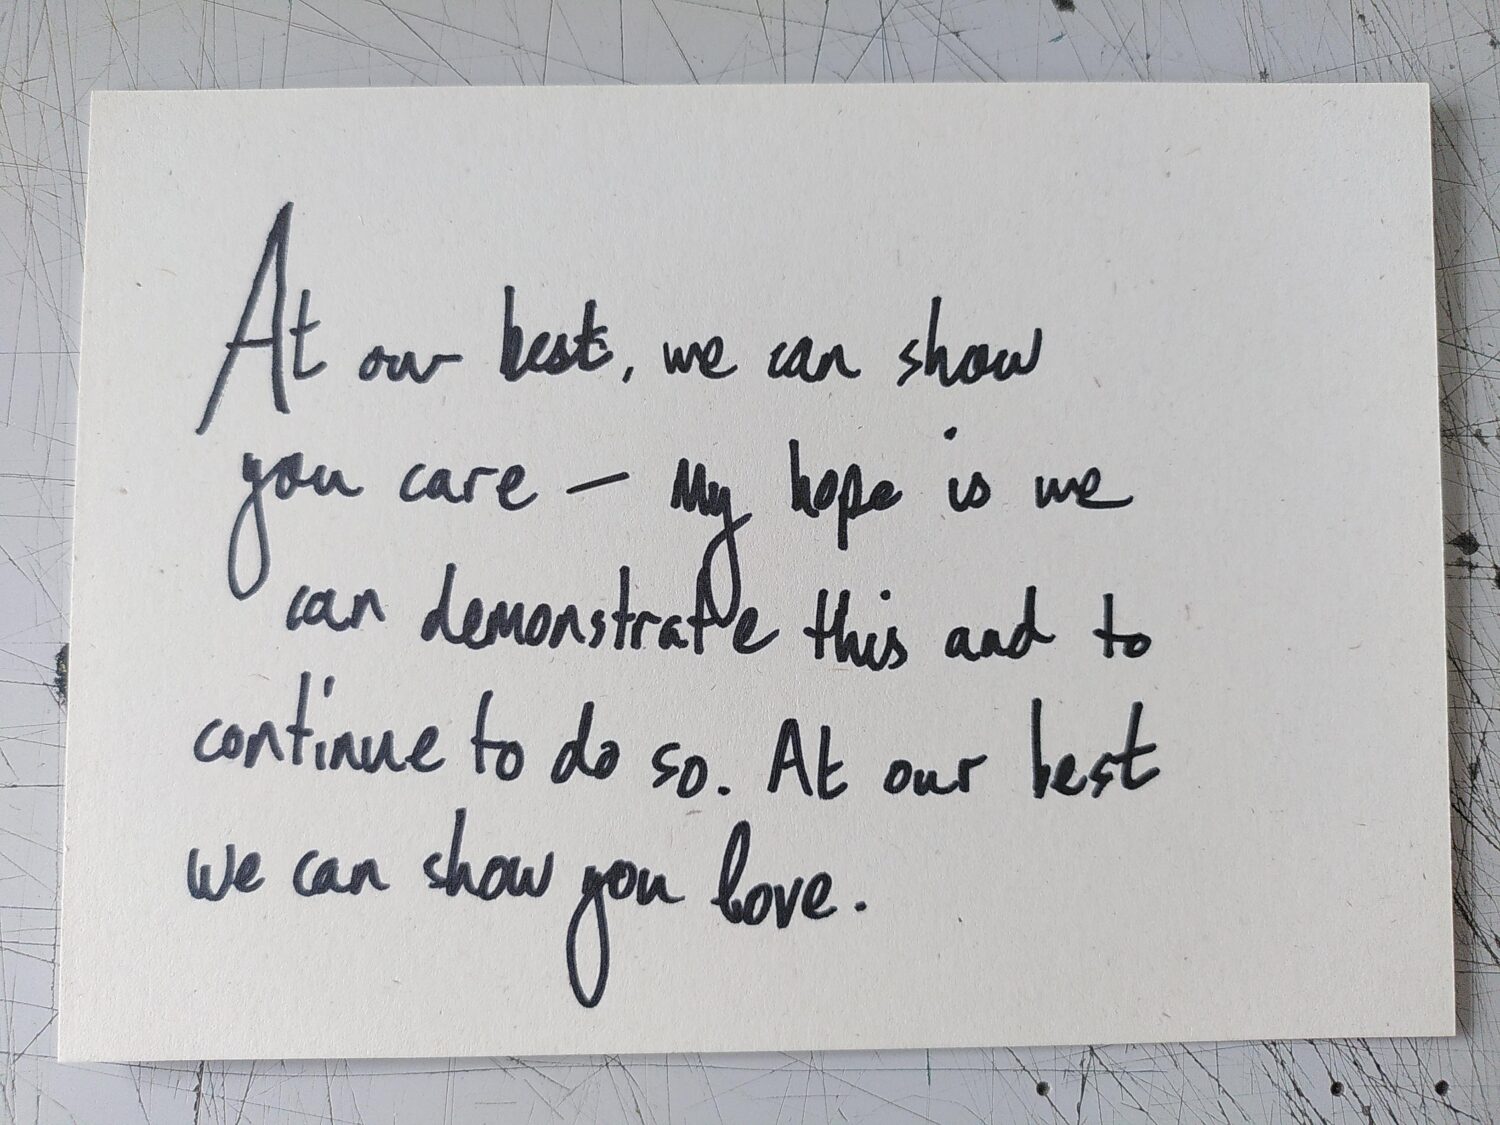 At our best, we can show
you care — My hope is we
can demonstrate this and to
continue to do so. At our best
we can show you love.